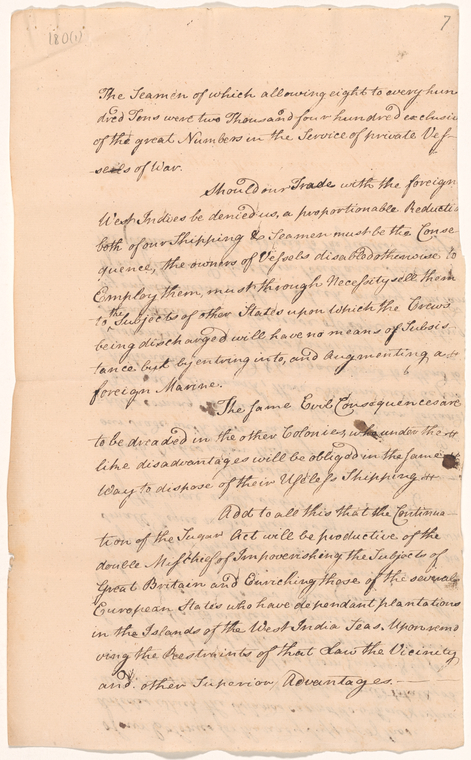 180(1)
7
The Seamen of which allowing eight to every hun
dred Tons were two Thousand four hundred exclusiv
of the great Numbers in the Service of private Ves-
sells of War.
Should our Trade with the foreign
West Indies be denied us, a proportionable Reducti
both of our Shipping & Seamen must be the Conse
quence, the owners of Vessels disabled otherwise to
Employ them, must through Necessity sell them
to the Subjects of other States upon which the Crews
being discharged will have no means of Subsis
tance but by entring into, and Augmenting a
foreign Marine.
The same Evil Consequences are
to be dreaded in the other Colonies, who under the
like disadvantages will be obliged in the same
Way to dispose of their Useless Shipping
Add to all this that the Continua-
tion of the Sugar Act will be productive of the
double Mischief of Impoverishing the Subjects of
Great Britain and Enriching those of the several
European States who have dependant plantations
in the Islands of the West India Seas. Upon remo
ving the Restraints of that Law the Vicinity
and other Superior Advantages. —